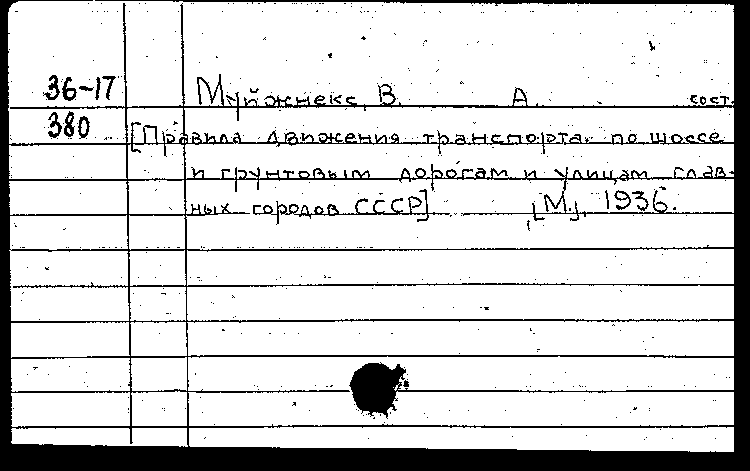 36-17 Муйжнекс, В. А. сост.
380 [Правила движения транспорта по шоссе
и грунтовым дорогам и улицам глав-
ных городов СССР] [М.], 1936.